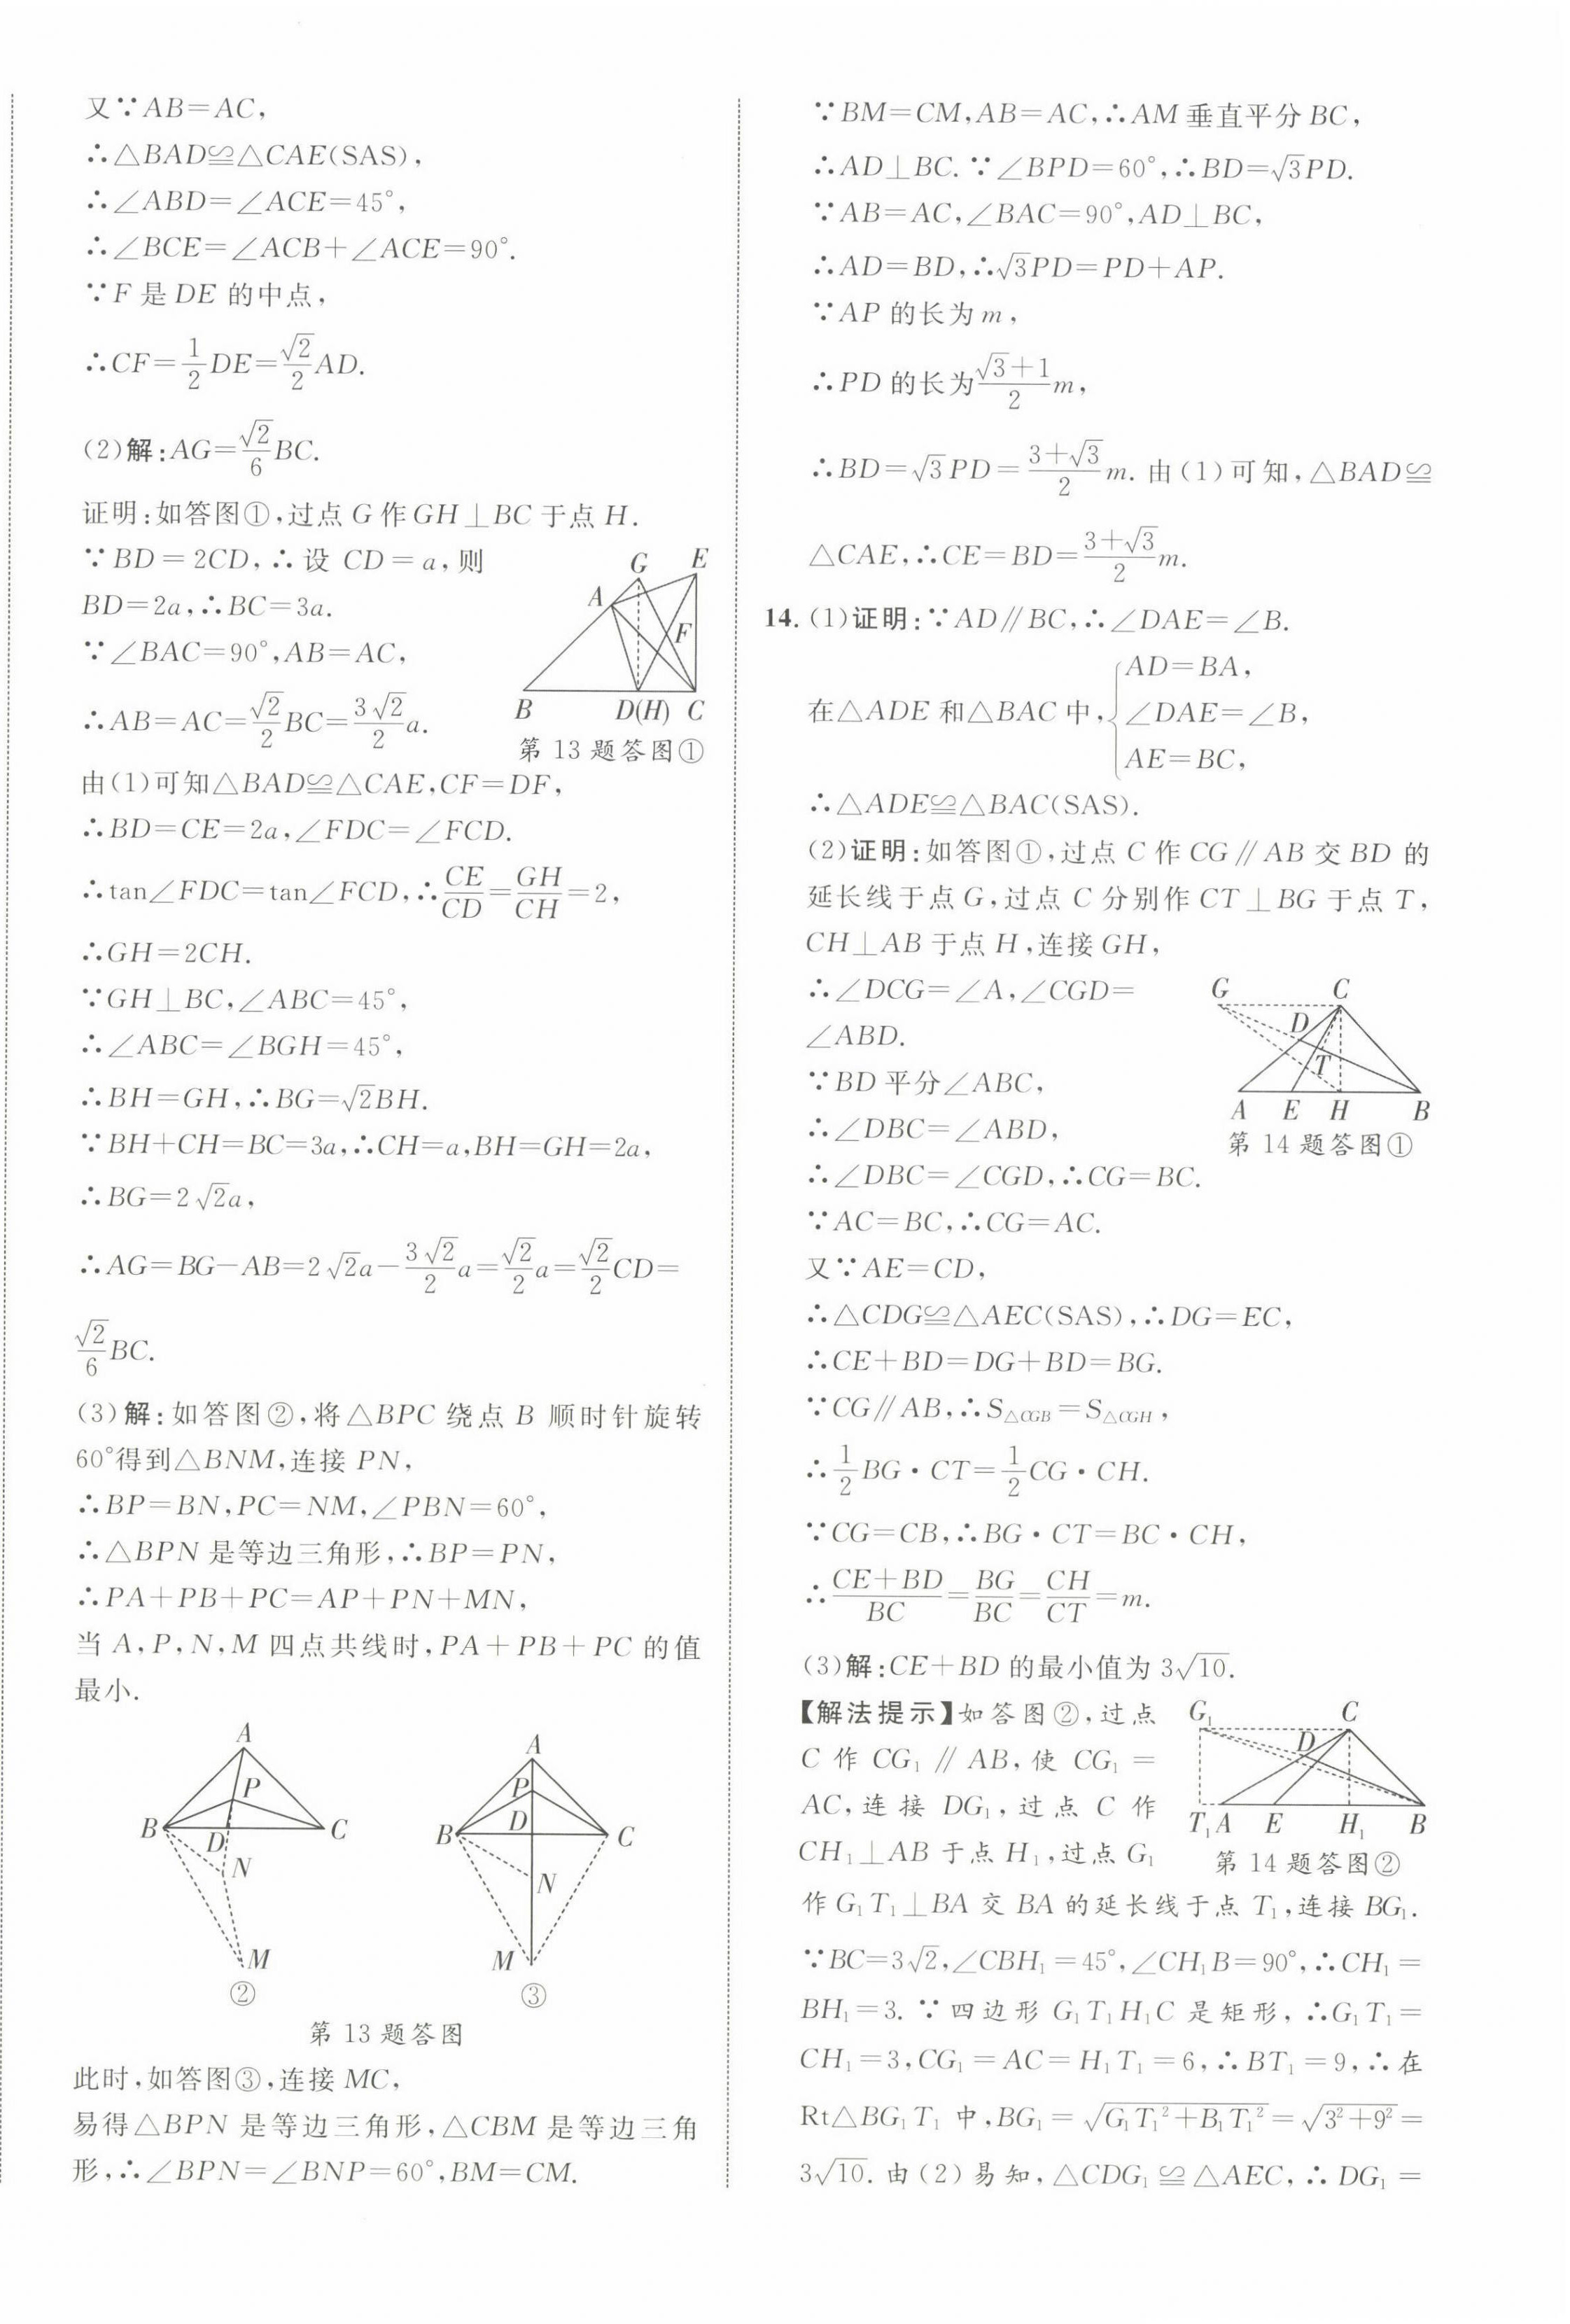 又∵AB=AC,
∴△BAD≌△CAE(SAS),
∴∠ABD=∠ACE=45°,
∴∠BCE=∠ACB+∠ACE=90°.
∵F 是 DE 的中点,
∴CF=1/2 DE=√2/2 AD.
(2)解:AG=√2/6 BC.
证明:如答图①,过点 G 作 GH⊥BC 于点 H.
∵BD=2CD,∴设 CD=a,则
BD=2a,∴BC=3a.
∵∠BAC=90°,AB=AC,
∴AB=AC=√2/2 BC=3√2/2 a.
G E
A
F
B D(H) C
第 13 题答图①
由(1)可知△BAD≌△CAE,CF=DF,
∴BD=CE=2a,∠FDC=∠FCD.
∴tan∠FDC=tan∠FCD,∴CE/CD=GH/CH=2,
∴GH=2CH.
∵GH⊥BC,∠ABC=45°,
∴∠ABC=∠BGH=45°,
∴BH=GH,∴BG=√2BH.
∵BH+CH=BC=3a,∴CH=a,BH=GH=2a,
∴BG=2√2a,
∴AG=BG-AB=2√2a-3√2/2 a=√2/2 a=√2/2 CD=
√2/6 BC.
(3)解:如答图②,将△BPC 绕点 B 顺时针旋转
60°得到△BNM,连接 PN,
∴BP=BN,PC=NM,∠PBN=60°,
∴△BPN 是等边三角形,∴BP=PN,
∴PA+PB+PC=AP+PN+MN,
当 A,P,N,M 四点共线时,PA+PB+PC 的值
最小.
A
P
B D C
N
M
②
A
P
B D C
N
M
③
第 13 题答图
此时,如答图③,连接 MC,
易得△BPN 是等边三角形,△CBM 是等边三角
形,∴∠BPN=∠BNP=60°,BM=CM.
∵BM=CM,AB=AC,∴AM 垂直平分 BC,
∴AD⊥BC.∵∠BPD=60°,∴BD=√3PD.
∵AB=AC,∠BAC=90°,AD⊥BC,
∴AD=BD,∴√3PD=PD+AP.
∵AP 的长为 m,
∴PD 的长为(√3+1)/2 m,
∴BD=√3PD=(3+√3)/2 m.由(1)可知,△BAD≌
△CAE,∴CE=BD=(3+√3)/2 m.
14.(1)证明:∵AD∥BC,∴∠DAE=∠B.
AD=BA,
在△ADE 和△BAC 中,{∠DAE=∠B,
AE=BC,
∴△ADE≌△BAC(SAS).
(2)证明:如答图①,过点 C 作 CG∥AB 交 BD 的
延长线于点 G,过点 C 分别作 CT⊥BG 于点 T,
CH⊥AB 于点 H,连接 GH,
∴∠DCG=∠A,∠CGD=
∠ABD.
∵BD 平分∠ABC,
∴∠DBC=∠ABD,
G C
D
T
A E H B
第 14 题答图①
∴∠DBC=∠CGD,∴CG=BC.
∵AC=BC,∴CG=AC.
又∵AE=CD,
∴△CDG≌△AEC(SAS),∴DG=EC,
∴CE+BD=DG+BD=BG.
∵CG∥AB,∴S△CGB=S△CGH,
∴1/2 BG·CT=1/2 CG·CH.
∵CG=CB,∴BG·CT=BC·CH,
∴(CE+BD)/BC=BG/BC=CH/CT=m.
(3)解:CE+BD 的最小值为 3√10.
【解法提示】如答图②,过点
C 作 CG₁∥AB,使 CG₁=
AC,连接 DG₁,过点 C 作
CH₁⊥AB 于点 H₁,过点 G₁
G₁ C
D
T₁ A E H₁ B
第 14 题答图②
作 G₁T₁⊥BA 交 BA 的延长线于点 T₁,连接 BG₁.
∵BC=3√2,∠CBH₁=45°,∠CH₁B=90°,∴CH₁=
BH₁=3.∵四边形 G₁T₁H₁C 是矩形,∴G₁T₁=
CH₁=3,CG₁=AC=H₁T₁=6,∴BT₁=9,∴在
Rt△BG₁T₁ 中,BG₁=√(G₁T₁²+B₁T₁²)=√(3²+9²)=
3√10.由(2)易知,△CDG₁≌△AEC,∴DG₁=